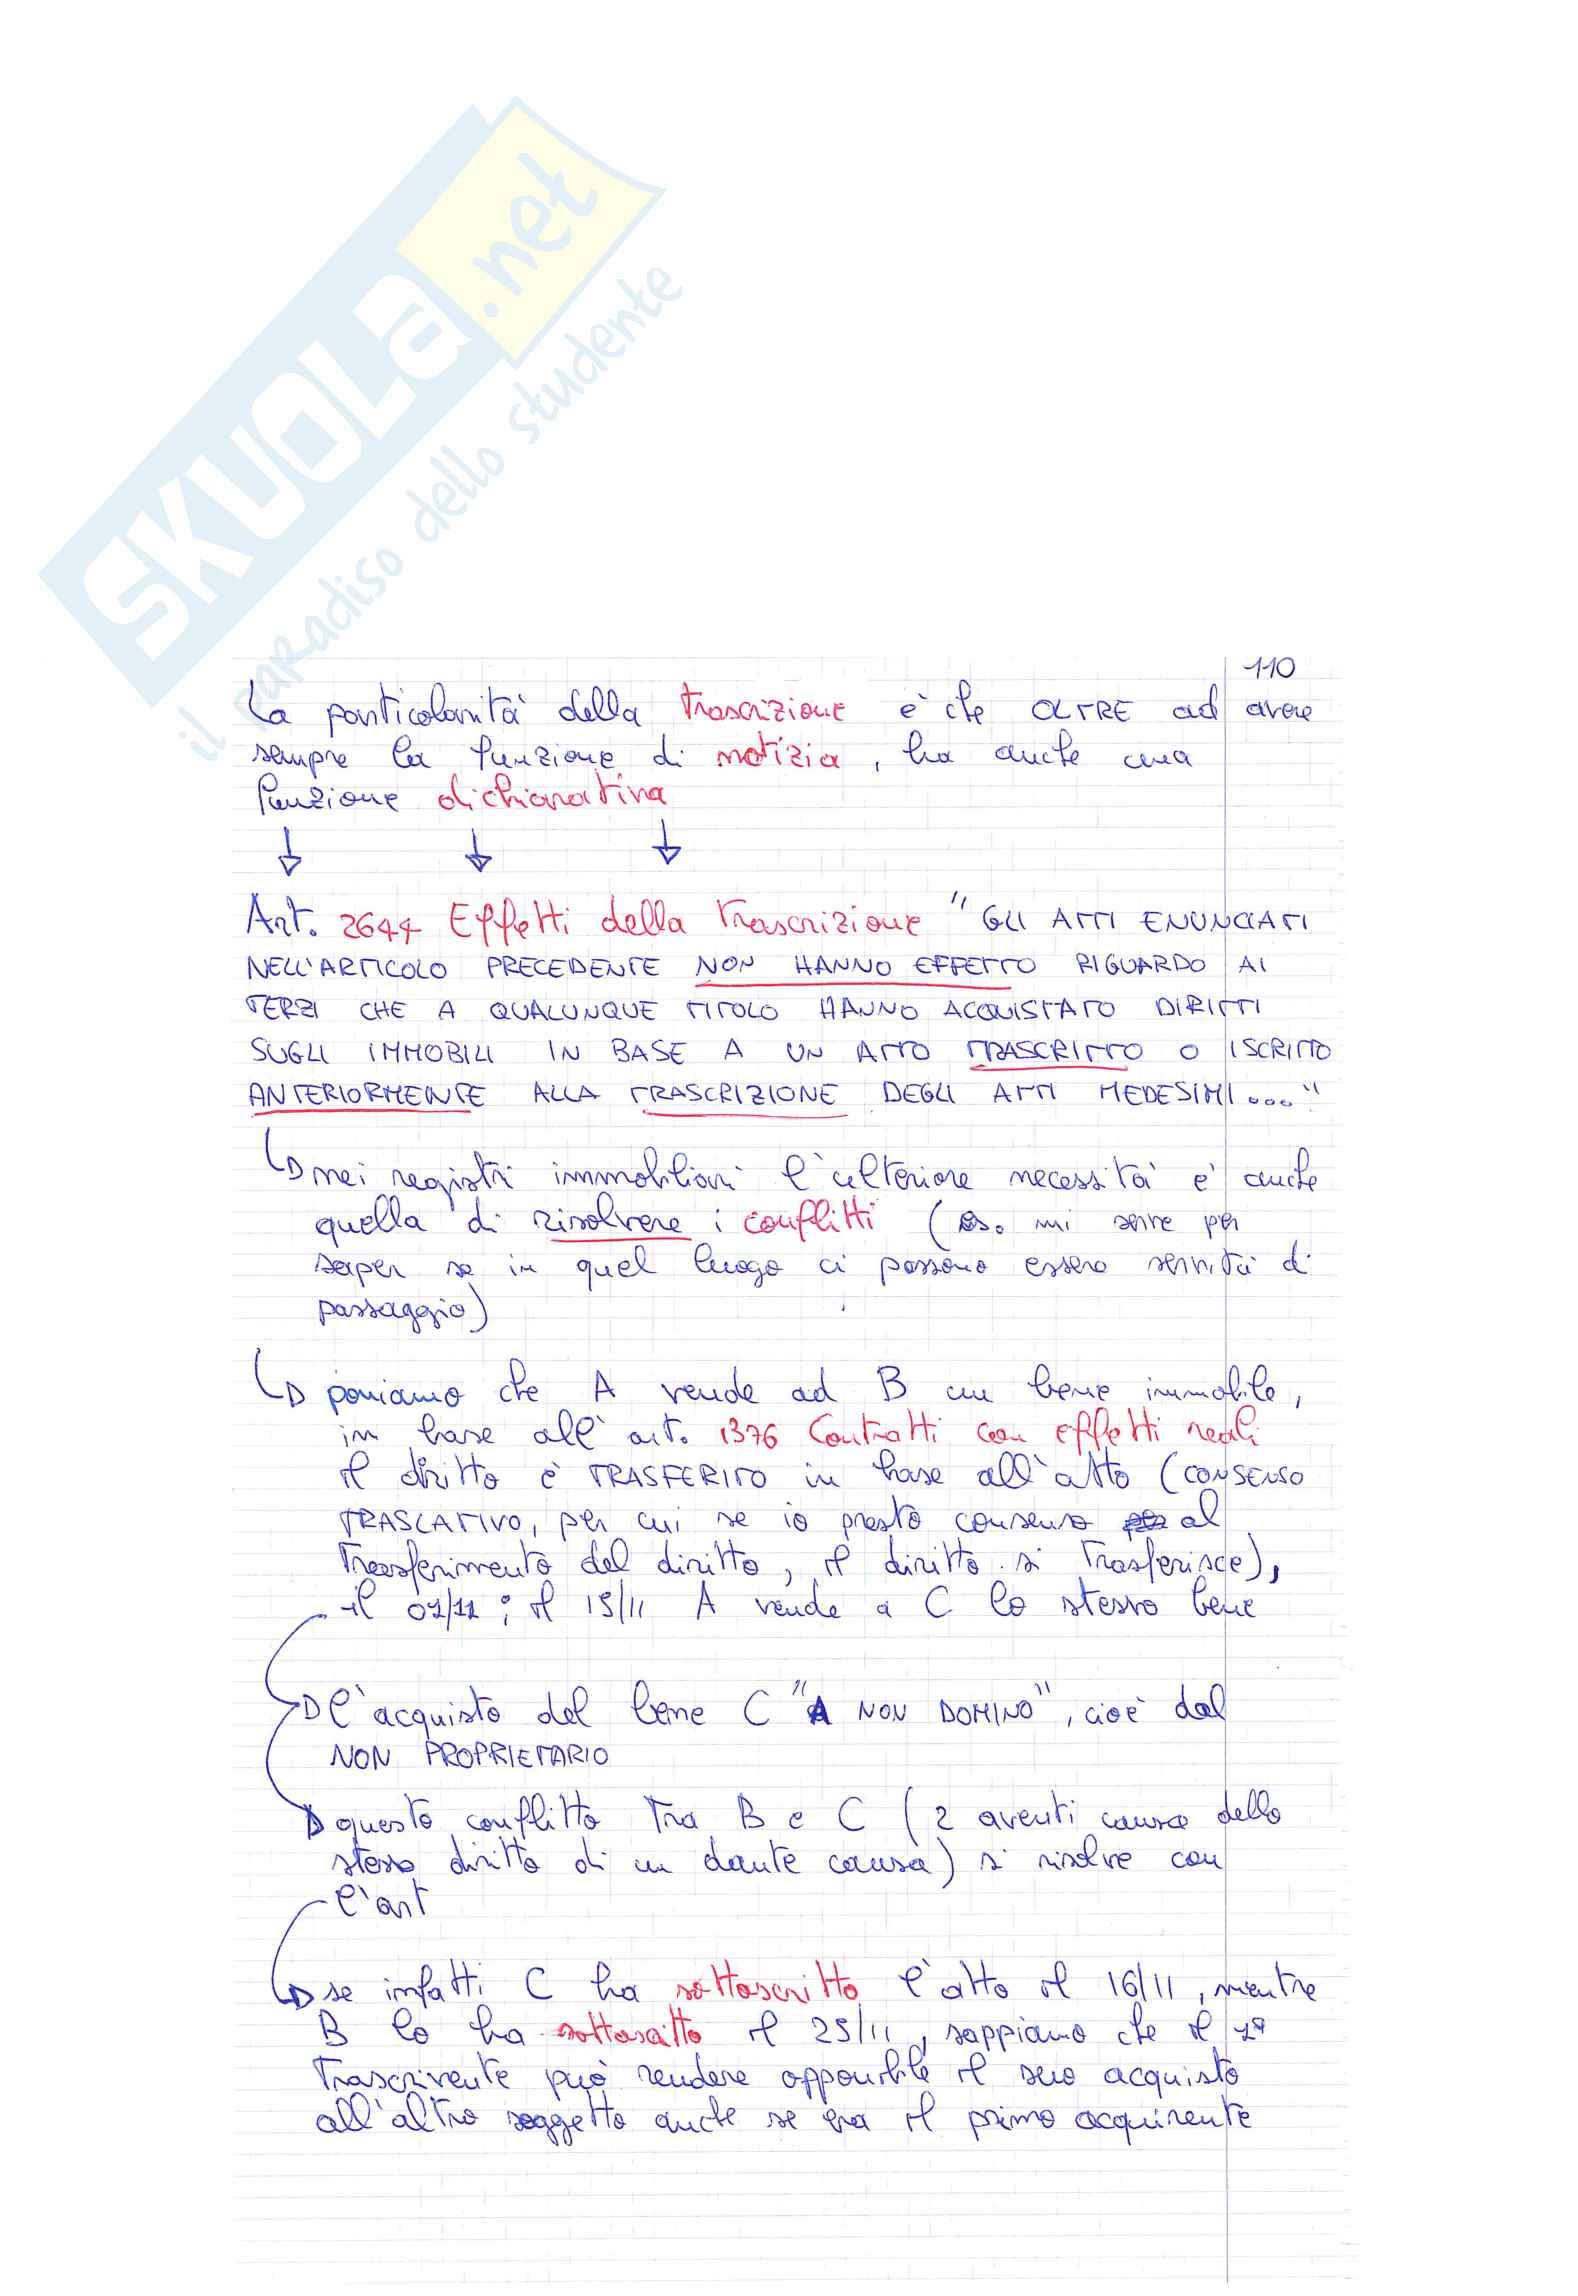 SKUOLA.net
il paradiso dello studente
110
La particolarità della trascrizione è che OLTRE ad avere
sempre la funzione di notizia, ha anche una
funzione dichiarativa
Art. 2644 Effetti della trascrizione " GLI ATTI ENUNCIATI
NELL'ARTICOLO PRECEDENTE NON HANNO EFFETTO RIGUARDO AI
TERZI CHE A QUALUNQUE TITOLO HANNO ACQUISTATO DIRITTI
SUGLI IMMOBILI IN BASE A UN ATTO TRASCRITTO O ISCRITTO
ANTERIORMENTE ALLA TRASCRIZIONE DEGLI ATTI MEDESIMI..."
nei registri immobiliari l'ulteriore necessità è anche
quella di risolvere i conflitti (es. mi serve per
saper se in quel luogo ci possono essere servitù di
passaggio)
poniamo che A vende ad B un bene immobile,
in base all'art. 1376 Contratti con effetti reali
il diritto è TRASFERITO in base all'atto (CONSENSO
TRASLATIVO, per cui se io presto consenso al
trasferimento del diritto, il diritto si trasferisce),
il 01/11; il 15/11 A vende a C lo stesso bene
l'acquisto del bene C "A NON DOMINO", cioè dal
NON PROPRIETARIO
questo conflitto tra B e C (2 aventi causa dello
stesso diritto di un dante causa) si risolve con
l'art
se infatti C ha sottoscritto l'atto il 16/11, mentre
B lo ha sottoscritto il 25/11, sappiamo che il 1°
trascrivente può rendere opponibile il suo acquisto
all'altro soggetto anche se era il primo acquirente